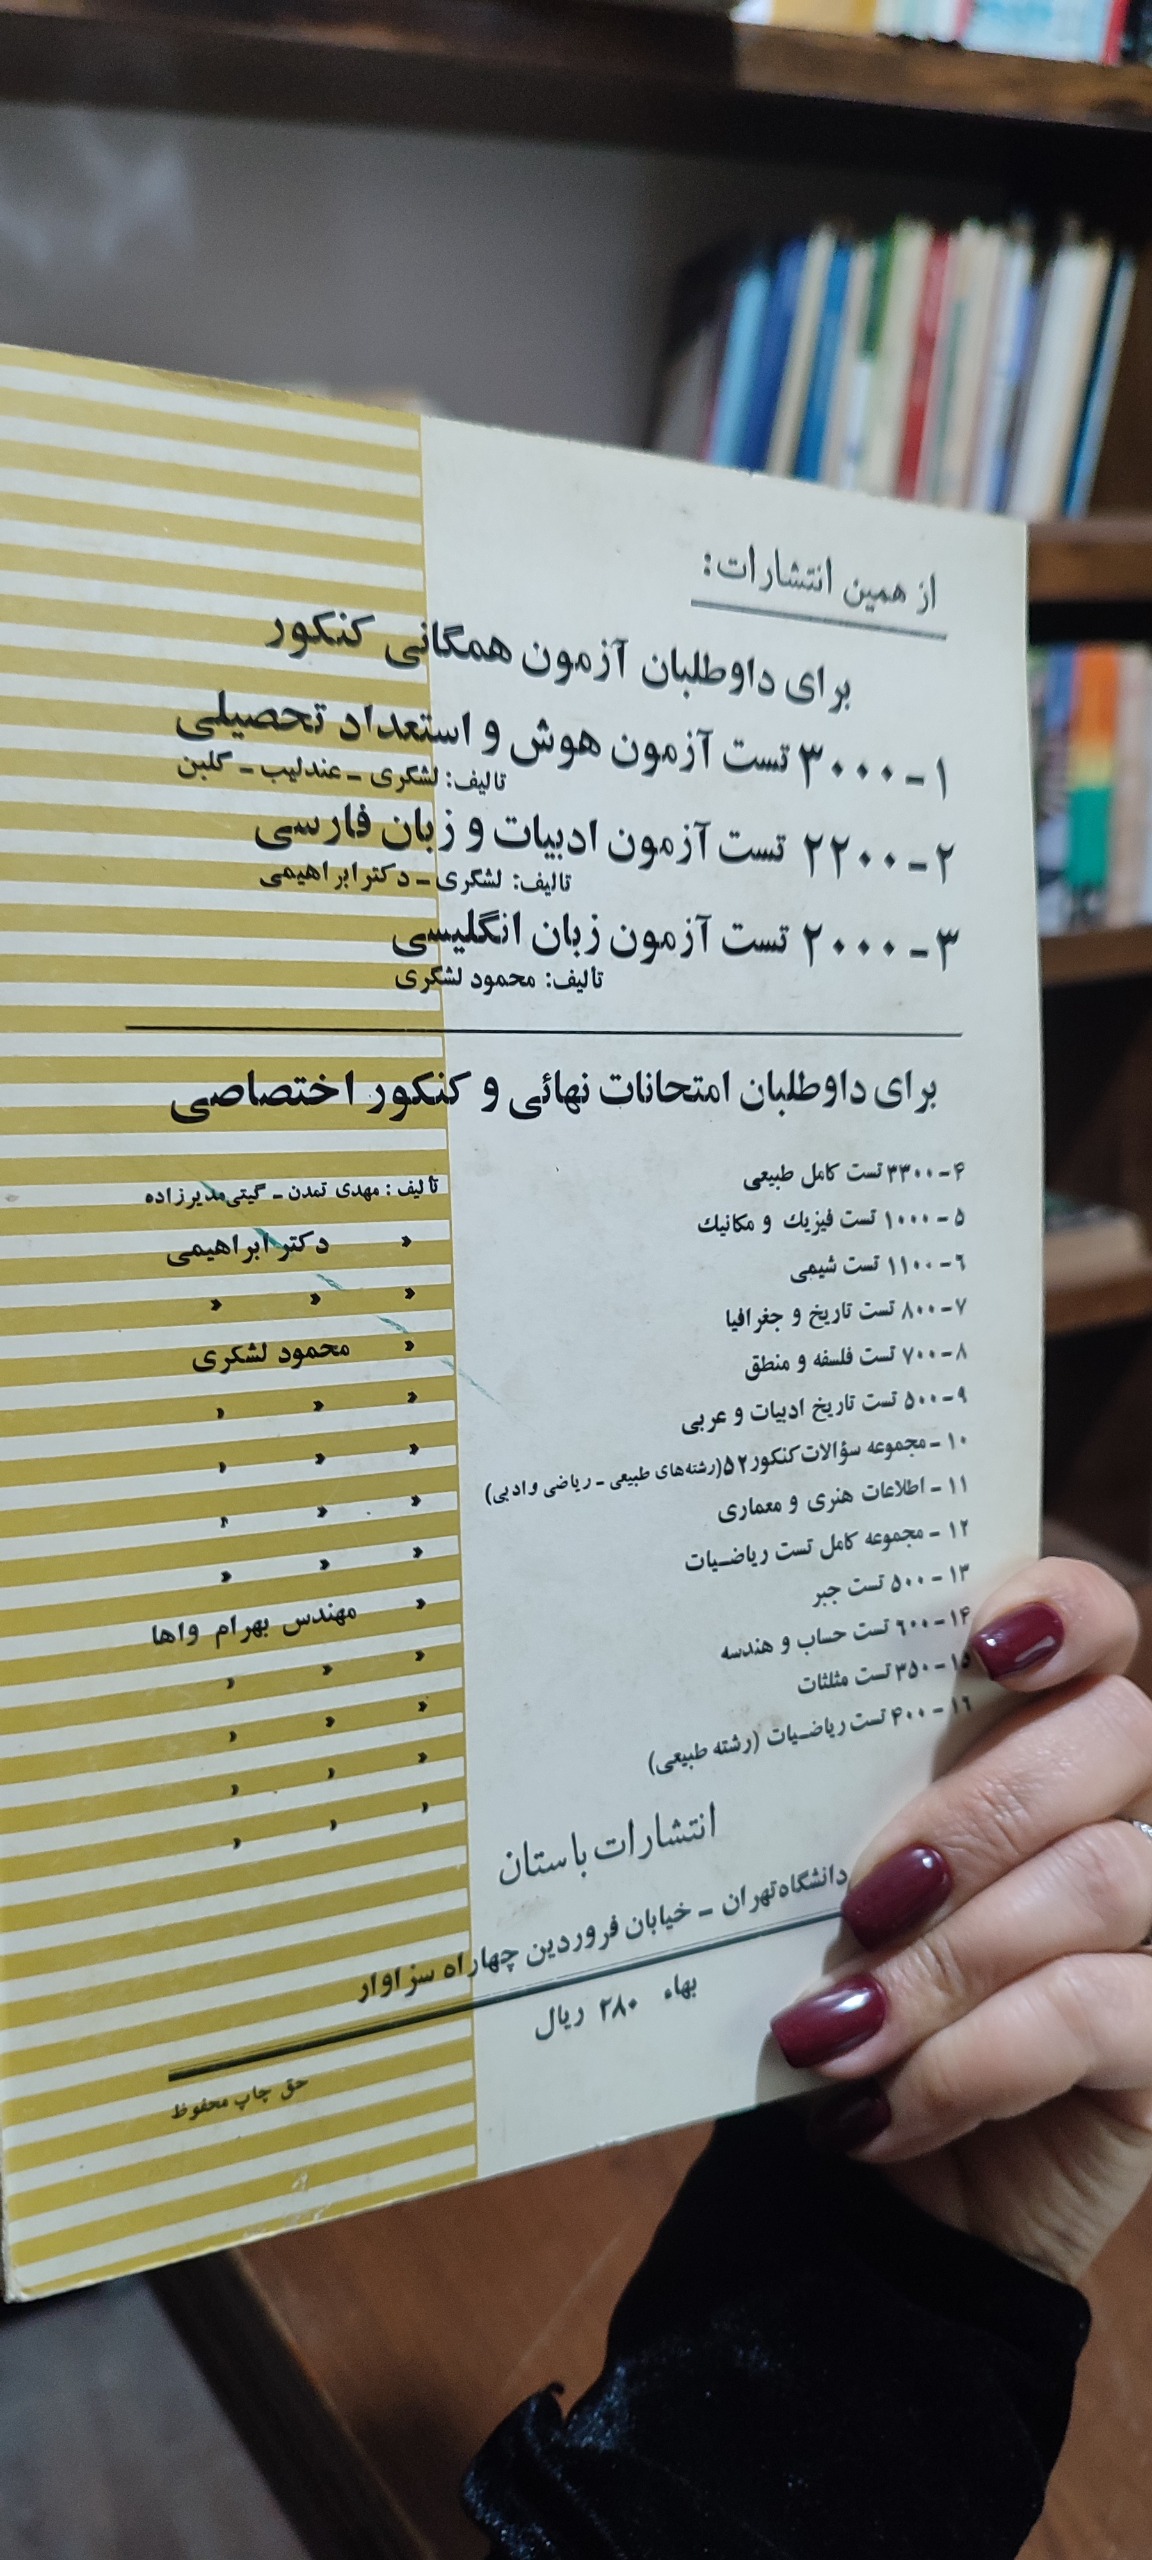 از همین انتشارات:
برای داوطلبان آزمون همگانی کنکور
۱- ۳۰۰۰ تست آزمون هوش و استعداد تحصیلی
تالیف: لشگری - عندلیب - گلبن
۲- ۲۲۰۰ تست آزمون ادبیات و زبان فارسی
تالیف: لشگری - دکتر ابراهیمی
۳- ۲۰۰۰ تست آزمون زبان انگلیسی
تالیف: محمود لشگری
برای داوطلبان امتحانات نهائی و کنکور اختصاصی
۴- ۳۳۰۰ تست کامل طبیعی تألیف : مهدی تمدن - گیتی مدیرزاده
۵- ۱۰۰۰ تست فیزیك و مکانیك » دکتر ابراهیمی
۶- ۱۱۰۰ تست شیمی » » »
۷- ۸۰۰ تست تاریخ و جغرافیا » محمود لشکری
۸- ۷۰۰ تست فلسفه و منطق » » »
۹- ۵۰۰ تست تاریخ ادبیات و عربی » » »
۱۰- مجموعه سؤالات کنکور ۵۲ (رشته‌های طبیعی - ریاضی و ادبی) » » »
۱۱- اطلاعات هنری و معماری » » »
۱۲- مجموعه کامل تست ریاضیات » مهندس بهرام واها
۱۳- ۵۰۰ تست جبر » » »
۱۴- ۶۰۰ تست حساب و هندسه » » »
۱۵- ۳۵۰ تست مثلثات » » »
۱۶- ۴۰۰ تست ریاضیات (رشته طبیعی) » » »
انتشارات باستان
دانشگاه تهران - خیابان فروردین چهاراه سزاوار
بهاء ۲۸۰ ریال
حق چاپ محفوظ